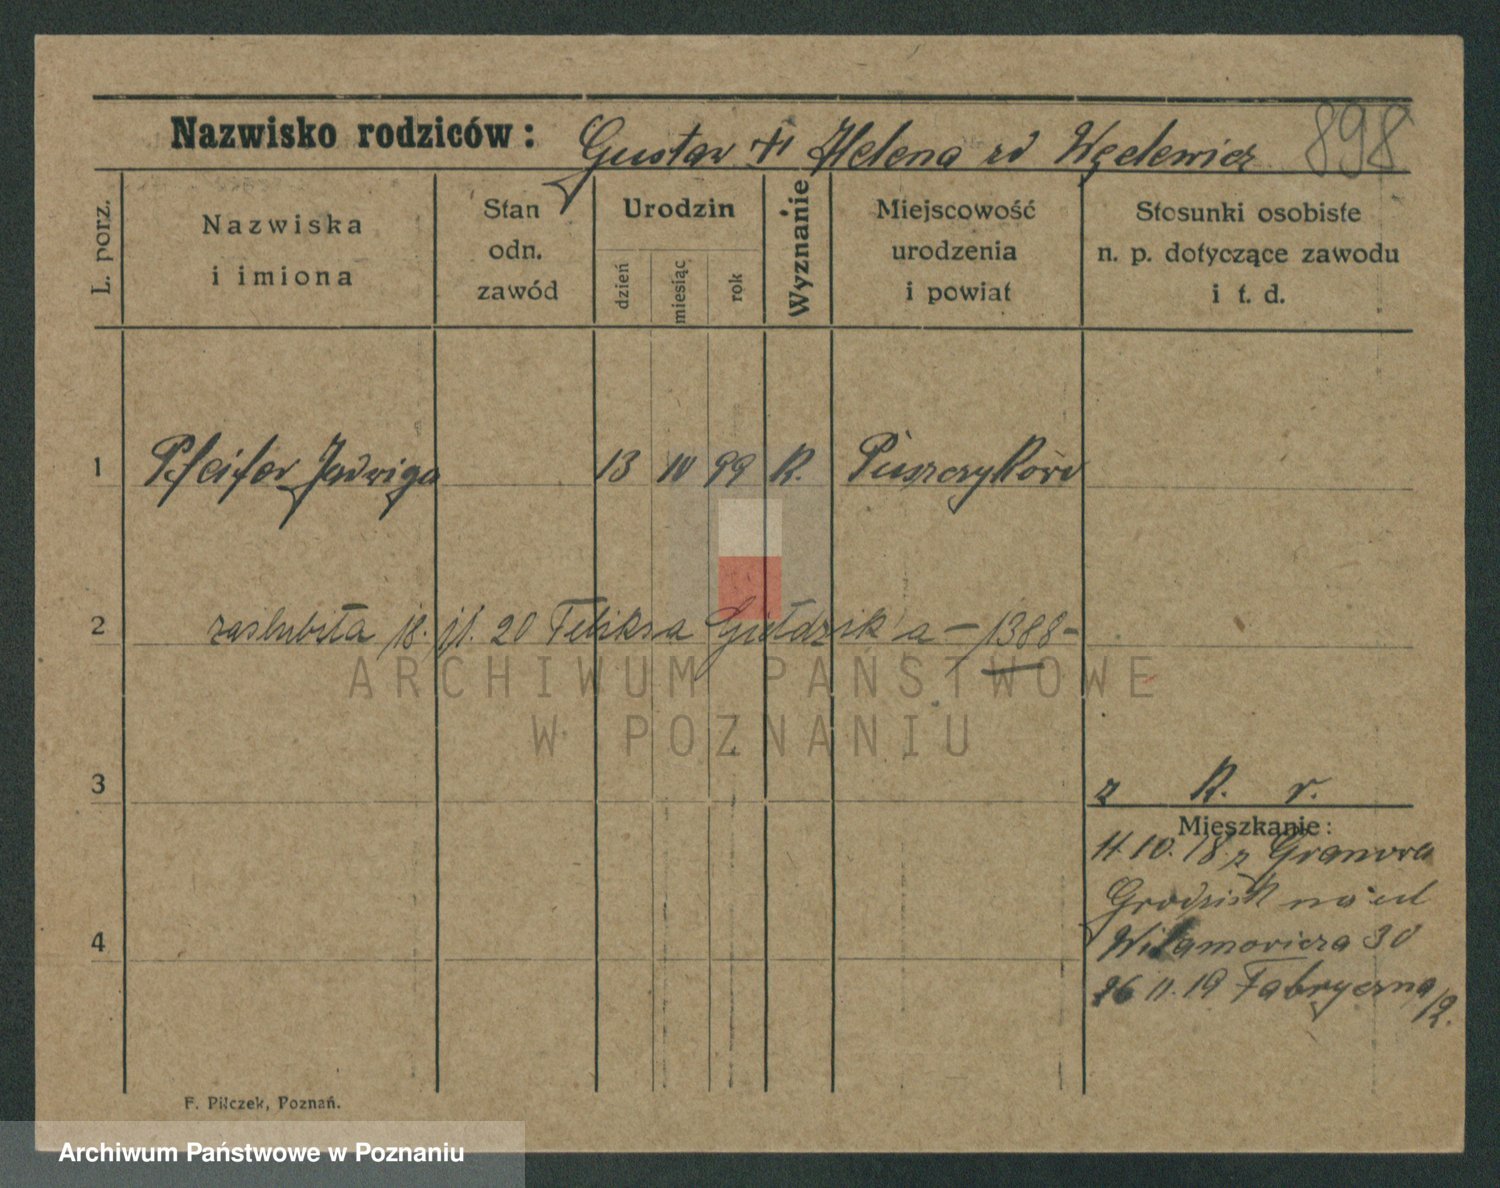 898
Nazwisko rodziców: Gustav †i Helena rd Węclewicz
L. porz.
Nazwiska i imiona
Stan odn. zawód
Urodzin
dzień
miesiąc
rok
Wyznanie
Miejscowość urodzenia i powiat
Stosunki osobiste n. p. dotyczące zawodu i t. d.
1 Pfeifer Jadwiga 13 10 99 R. Puszczykowo
2 zaslubiła 18. 20 Feliksa – 1388 –
ARCHIWUM PAŃSTWOWE
W POZNANIU
3
z R. r.
Mieszkanie:
11 10. 18. z Granowa
Grodzisk na ul
Wilamowicza 30
26 11. 19 Fabryczna
12.
4
F. Pilczek, Poznań.
Archiwum Państwowe w Poznaniu